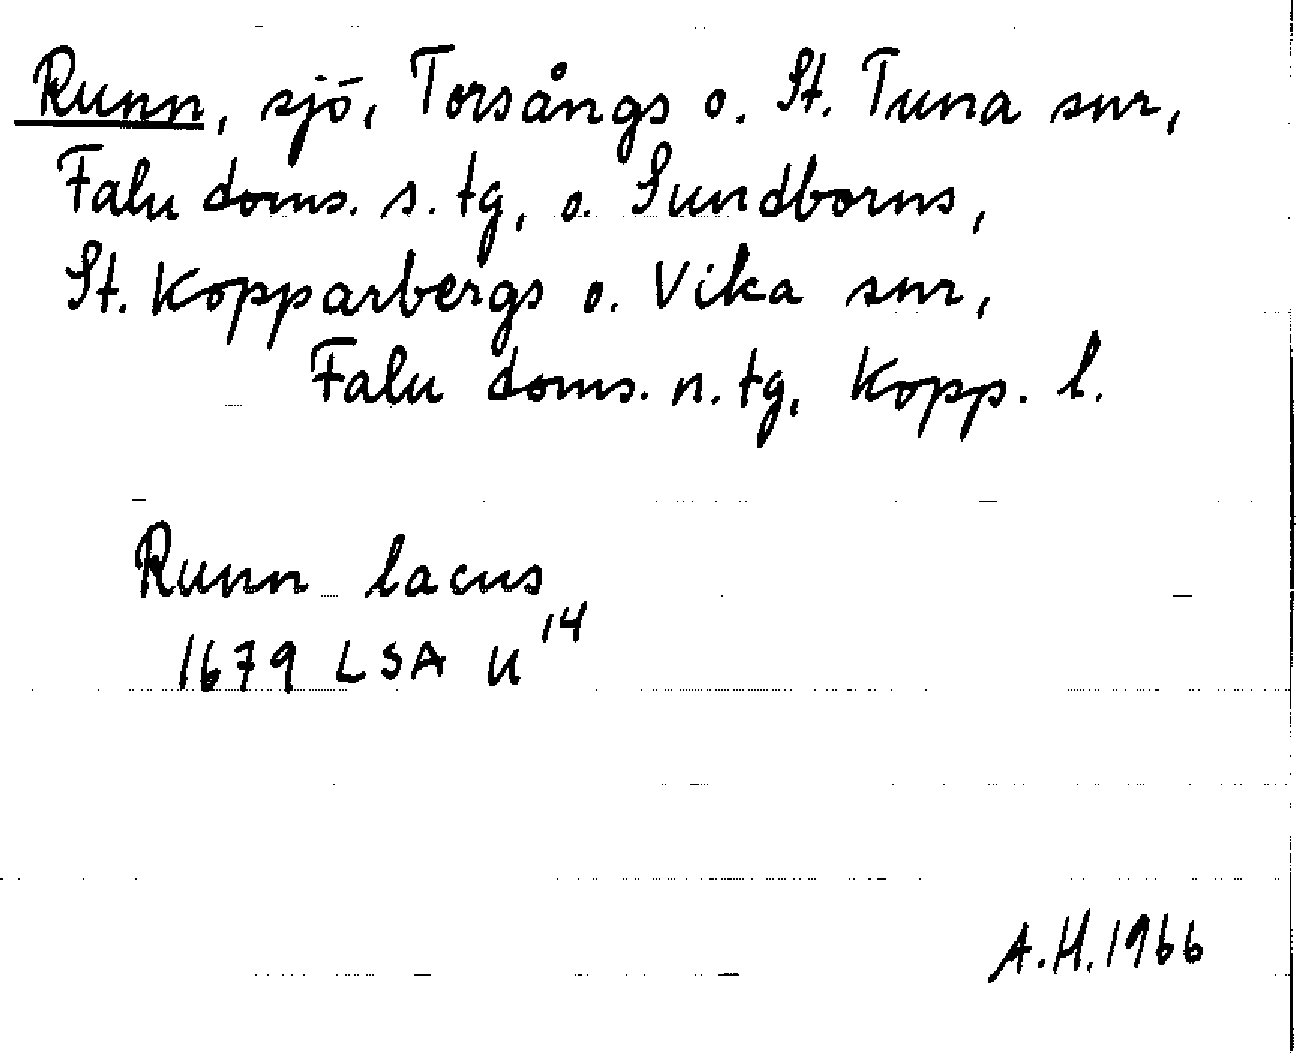 Runn, sjö, Torsångs o. St. Tuna snr,
Falu doms. s. tg, o. Sundborns,
St. Kopparbergs o. Vika snr,
Falu doms. n. tg, Kopp. l.
Runn lacus
1679 LSA U 14
A.H. 1966